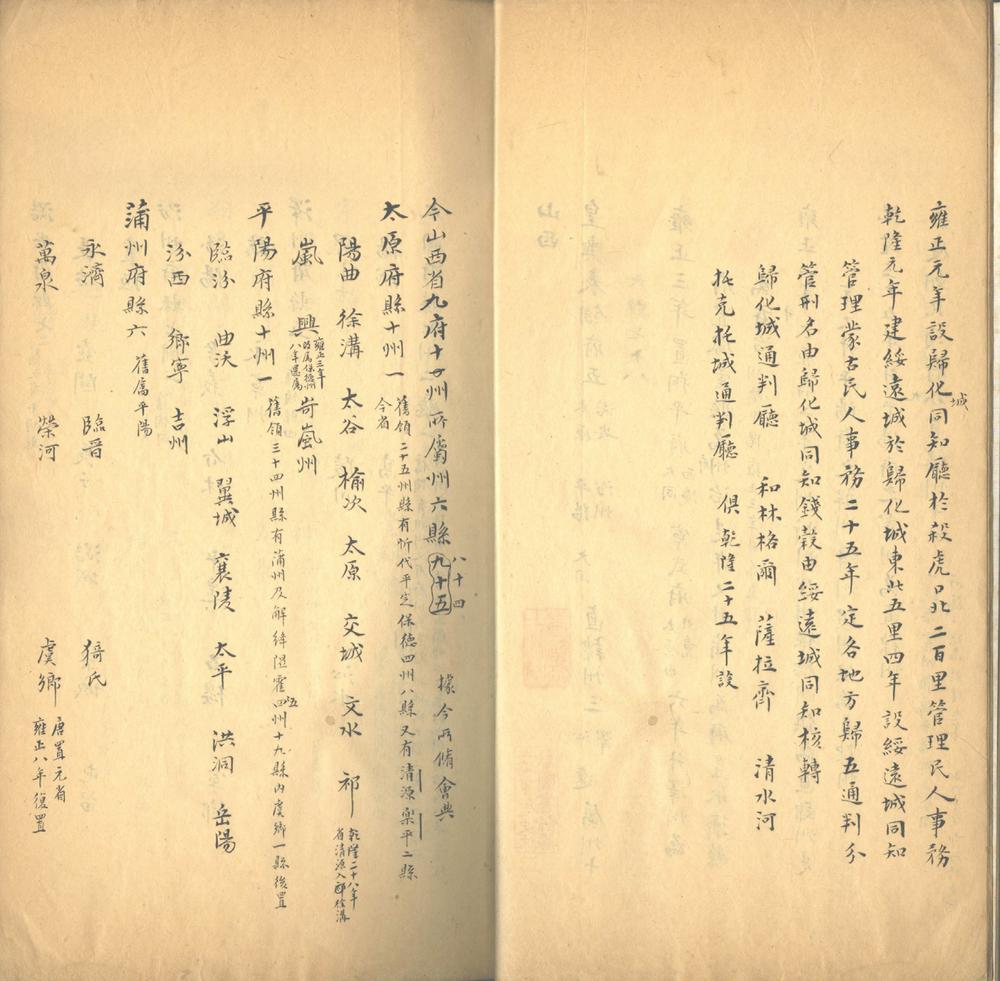 雍正元年設歸化城同知廳於殺虎口北二百里管理民人事務
乾隆元年建綏遠城於歸化城東北五里四年設綏遠城同知
管理蒙古民人事務二十五年定各地方歸五通判分
管刑名由歸化城同知錢穀由綏遠城同知核轉
歸化城通判廳 和林格爾 薩拉齊 清水河
托克托城通判廳 俱乾隆二十五年設
今山西省九府十州所屬州六縣九十五 八十四 據今所脩會典
太原府縣十州一 舊領二十五州縣有忻代平定保德四州八縣又有清源樂平二縣
今省
陽曲 徐溝 太谷 榆次 太原 交城 文水 祁 乾隆二十八年
省清源入 徐溝
嵐 興 雍正二年
改屬保德州
八年還屬 岢嵐州
平陽府縣十州一 舊領三十四州縣有蒲州及解絳隰霍四州十九縣內虞鄉一縣後置
臨汾 曲沃 浮山 翼城 襄陵 太平 洪洞 岳陽
汾西 鄉寧 吉州
蒲州府縣六 舊屬平陽
永濟 臨晉 猗氏
萬泉 榮河 虞鄉 唐置元省
雍正八年復置